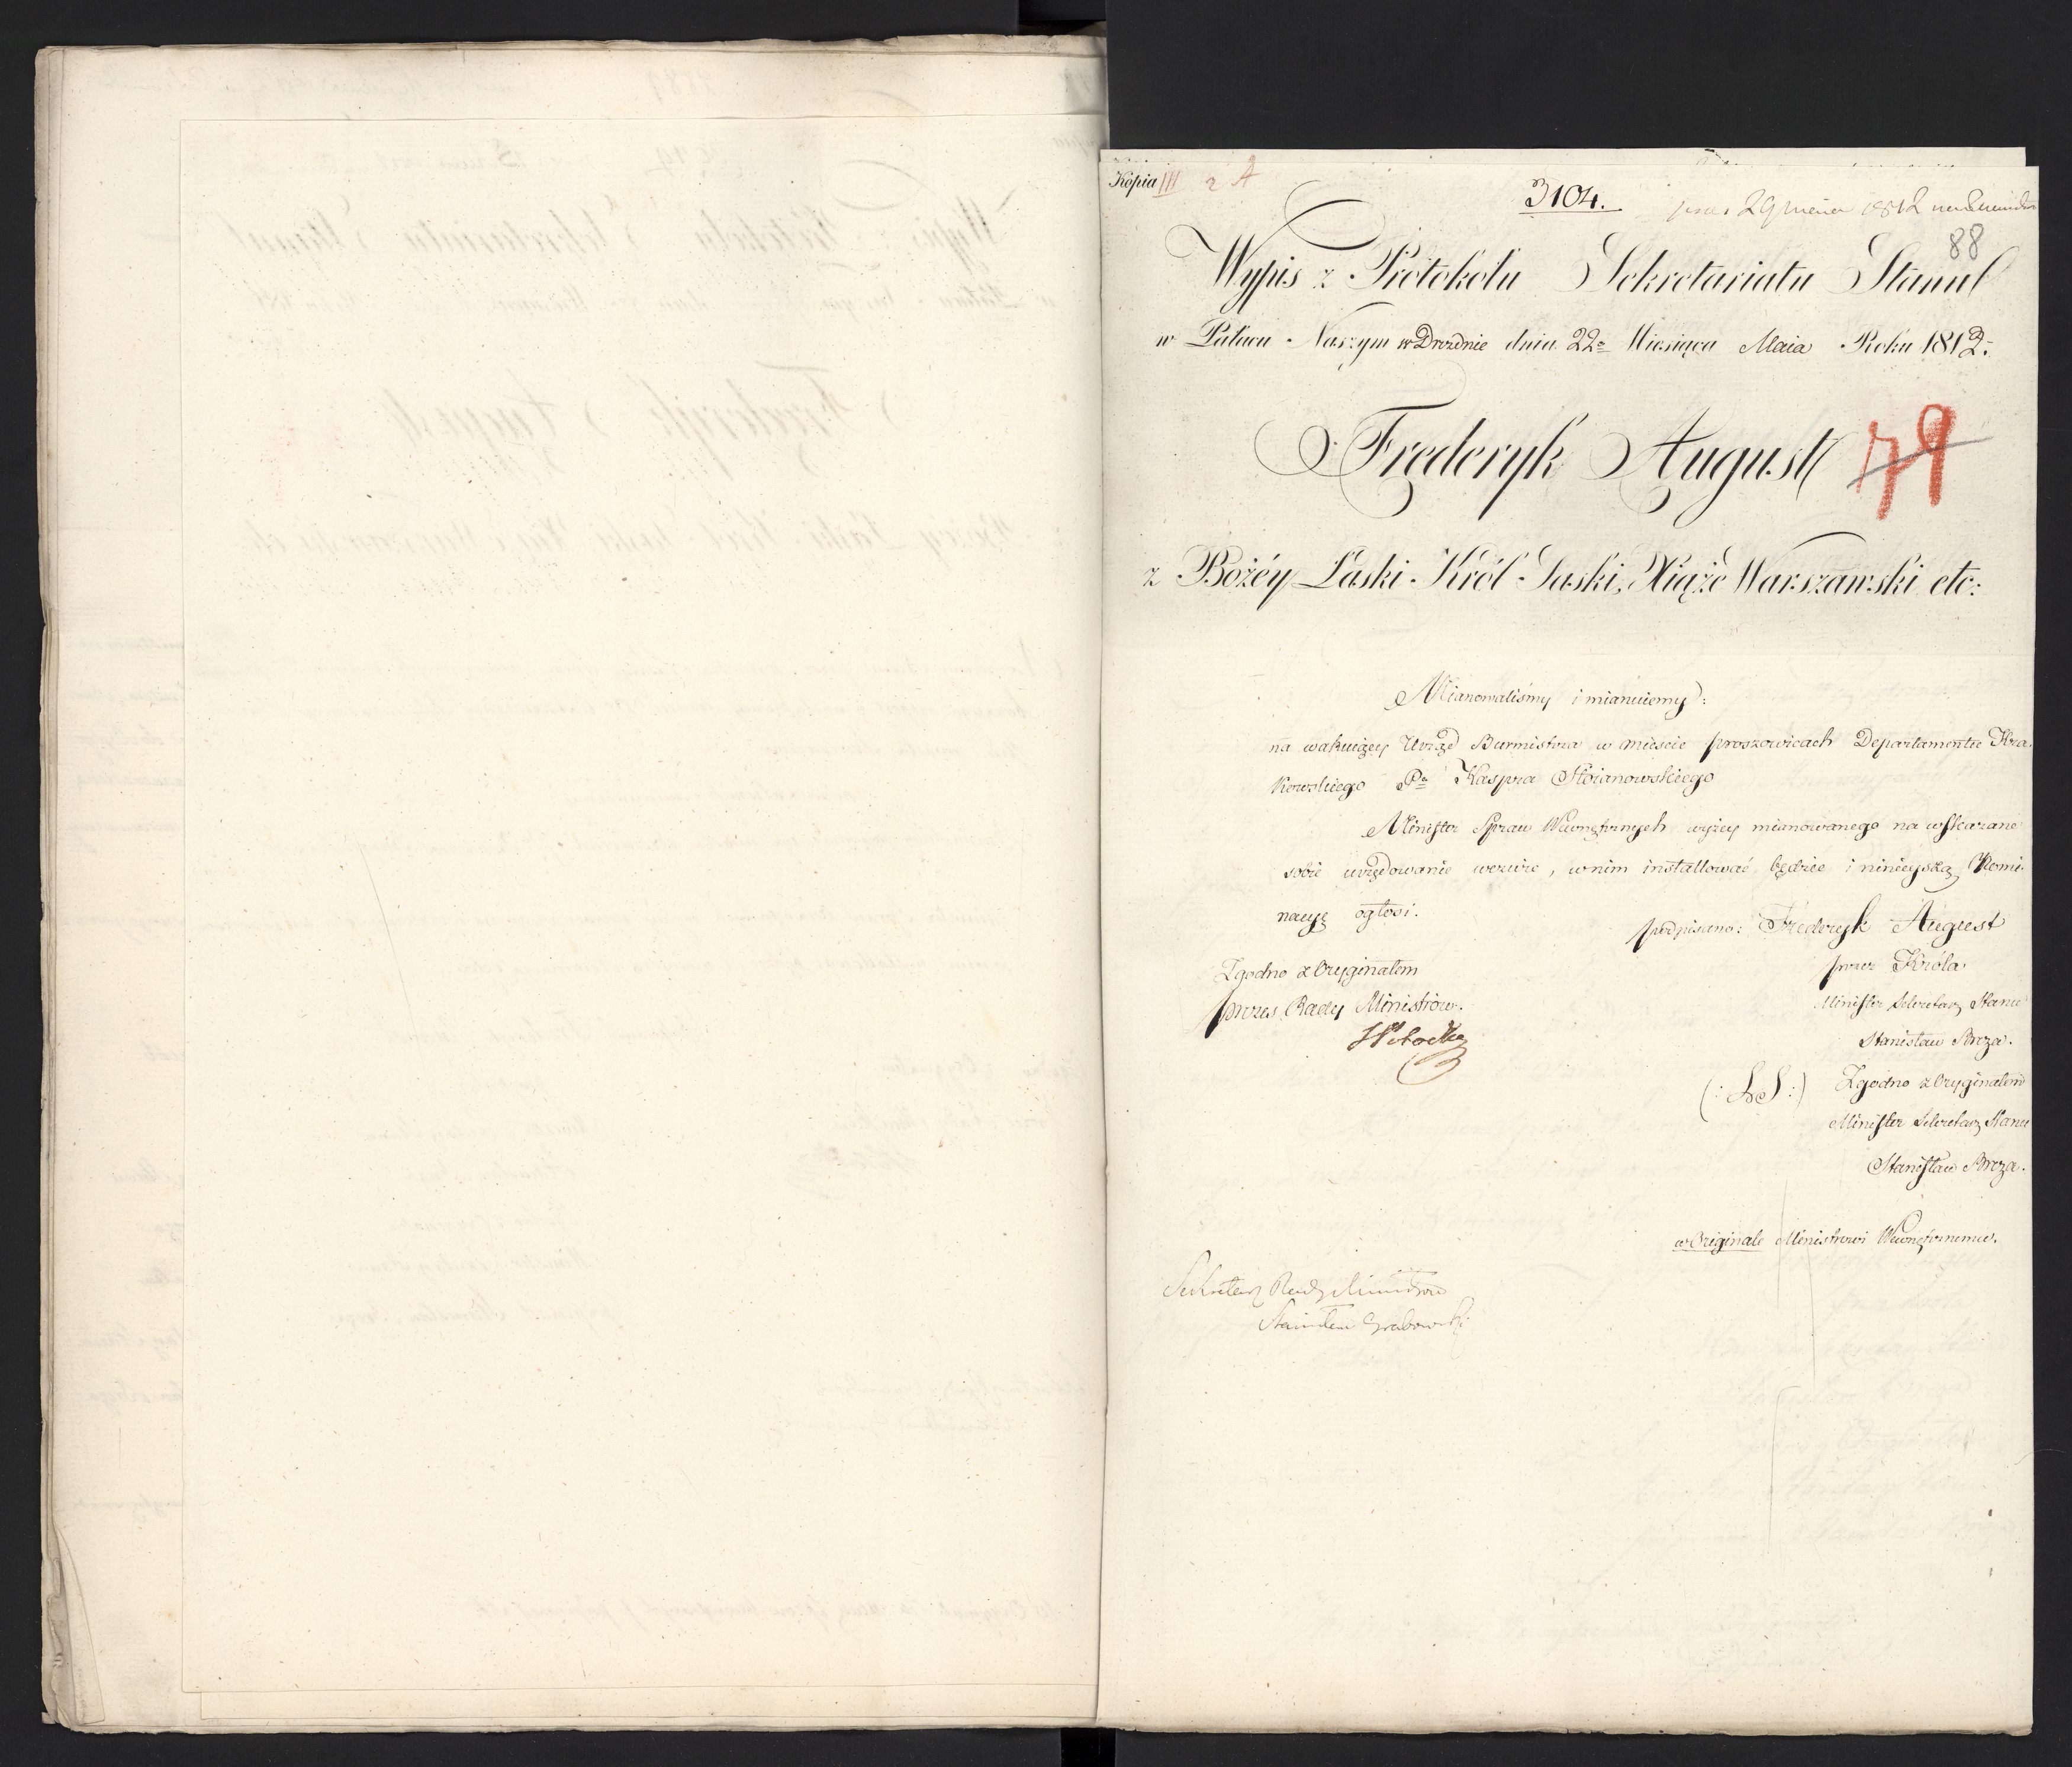 Kopia III 2 A
3104.
88
Wypis z Protokołu Sekretariatu Stanu
w Pałacu Naszym w Dreznie dnia 22º Miesiąca Maia Roku 1812.
Frederyk August
79
z Bożéy Łaski Król Saski, Xiąże Warszawski etc:
Mianowaliśmy i mianuiemy:
na wakuiący Urząd Burmistrza w mieście Proszowicach Departamentu Kra-
kowskiego Pª Kaspra Stoianowskiego
Minister Spraw Wewnętrznych wyżey mianowanego na wskazane
sobie urzędowanie wezwie, w nim installować będzie i ninieyszą Nomi-
nacyę ogłosi.
podpisano: Frederyk August
przez Króla
Minister Sekretarz Stanu
Stanisław Breza.
Zgodno z Oryginałem
Prezes Rady Ministrów.
(: L.S :) Zgodno z Oryginałem
Minister Sekretarz Stanu
Stanisław Breza.
w Originale Ministrowi Wewnętrznemu.
Sekretarz Rady Ministrów
Stanisław Grabowski